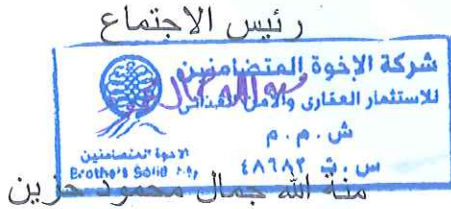 رئيس الاجتماع
شركة الإخوة المتضامنين
للاستثمار العقارى والأمن الغذائى
ش . م . م
س . ت ٤٨٦٨٢
الاخوة المتضامنين
Brother's Solid
منة الله جمال محمود حزين